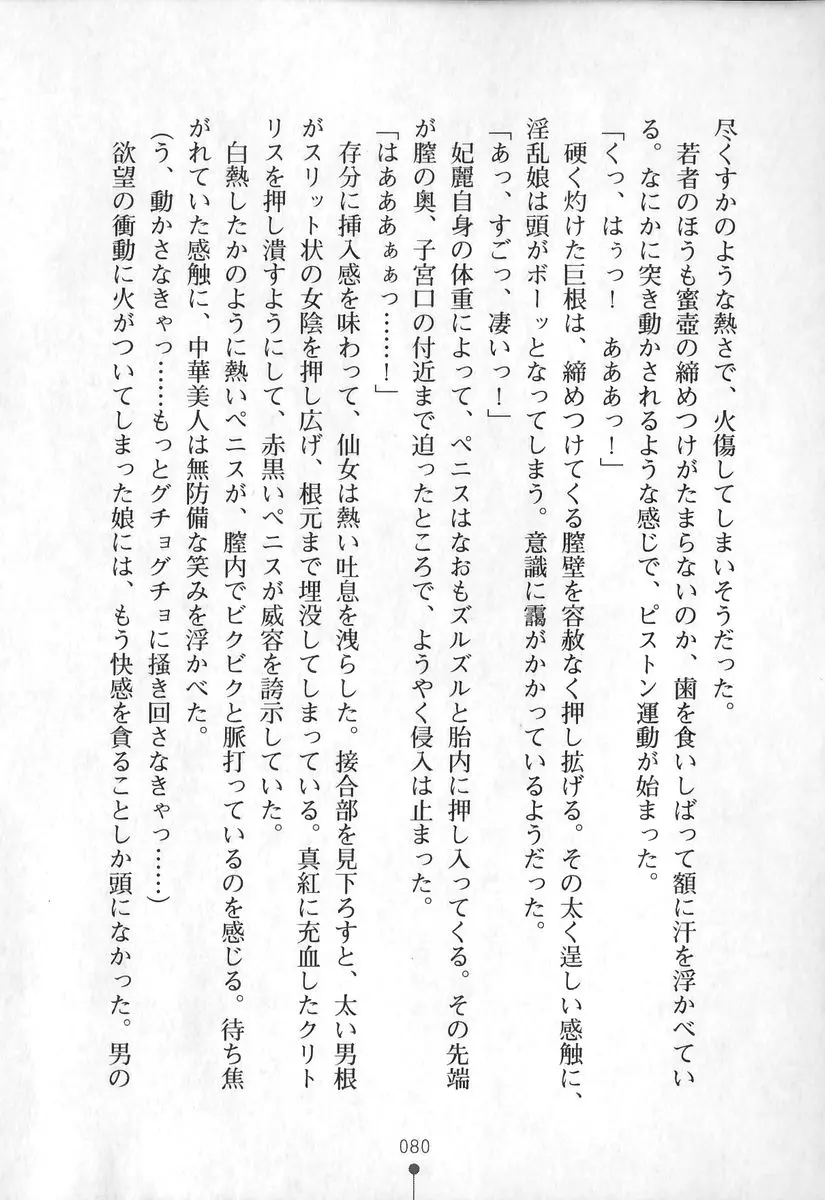 尽くすかのような熱さで、火傷してしまいそうだった。
若者のほうも蜜壺の締めつけがたまらないのか、歯を食いしばって額に汗を浮かべてい
る。なにかに突き動かされるような感じで、ピストン運動が始まった。
「くっ、はぅっ！　あああっ！」
硬く灼けた巨根は、締めつけてくる膣壁を容赦なく押し拡げる。その太く逞しい感触に、
淫乱娘は頭がボーッとなってしまう。意識に靄がかかっているようだった。
「あっ、すごっ、凄いっ！」
妃麗自身の体重によって、ペニスはなおもズルズルと胎内に押し入ってくる。その先端
が膣の奥、子宮口の付近まで迫ったところで、ようやく侵入は止まった。
「はあああぁぁっ……！」
存分に挿入感を味わって、仙女は熱い吐息を洩らした。接合部を見下ろすと、太い男根
がスリット状の女陰を押し広げ、根元まで埋没してしまっている。真紅に充血したクリト
リスを押し潰すようにして、赤黒いペニスが威容を誇示していた。
白熱したかのように熱いペニスが、膣内でビクビクと脈打っているのを感じる。待ち焦
がれていた感触に、中華美人は無防備な笑みを浮かべた。
（う、動かさなきゃっ……もっとグチョグチョに掻き回さなきゃっ……）
欲望の衝動に火がついてしまった娘には、もう快感を貪ることしか頭になかった。男の
080